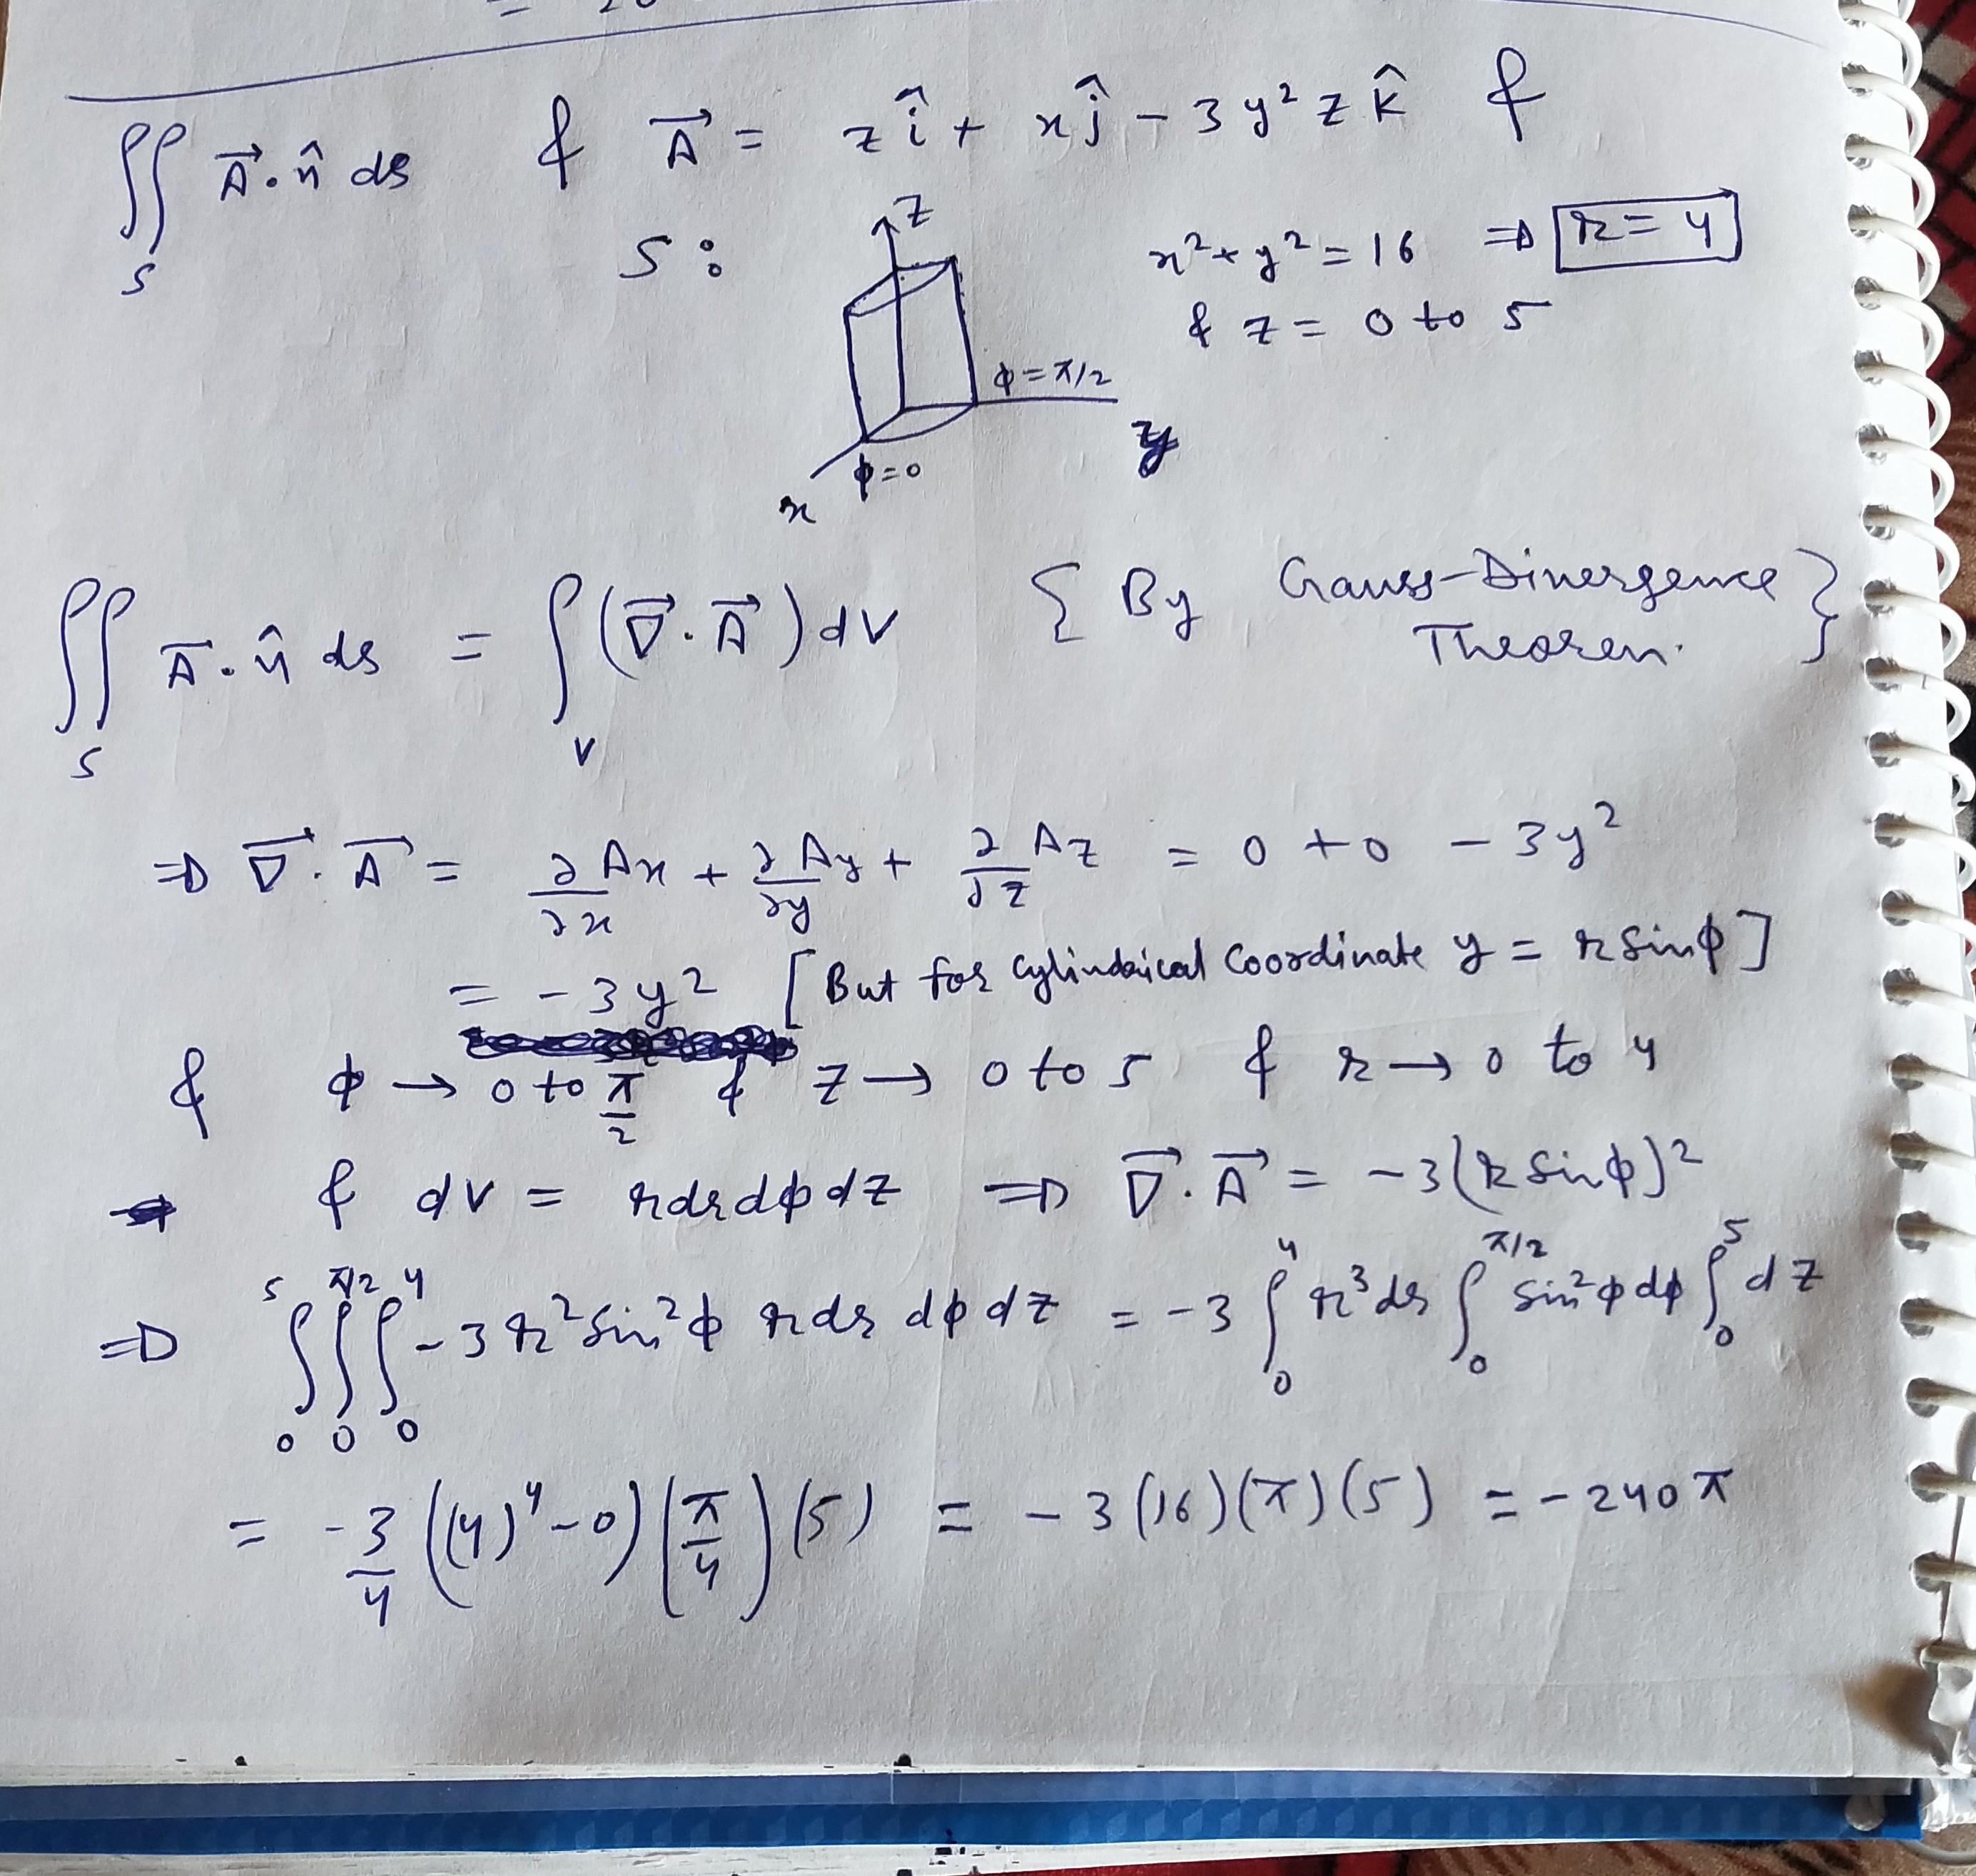 = 20
∬_S A⃗·n̂ ds & A⃗ = z î + x ĵ − 3y²z k̂ &
S: z x² + y² = 16 ⇒ r = 4
& z = 0 to 5
φ = π/2
y
φ = 0
x
∬_S A⃗·n̂ ds = ∫_V (∇⃗·A⃗) dV { By Gauss-Divergence
Theorem. }
⇒ ∇⃗·A⃗ = ∂Ax/∂x + ∂Ay/∂y + ∂Az/∂z = 0 + 0 − 3y²
= −3y² [But for Cylindrical Coordinate y = r sinφ]
& φ → 0 to π/2 & z → 0 to 5 & r → 0 to 4
& dV = r dr dφ dz ⇒ ∇⃗·A⃗ = −3(r sinφ)²
⇒ ∫₀⁵ ∫₀^{π/2} ∫₀⁴ −3r² sin²φ r dr dφ dz = −3 ∫₀⁴ r³ dr ∫₀^{π/2} sin²φ dφ ∫₀⁵ dz
= −3/4 ((4)⁴ − 0) (π/4) (5) = −3(16)(π)(5) = −240π